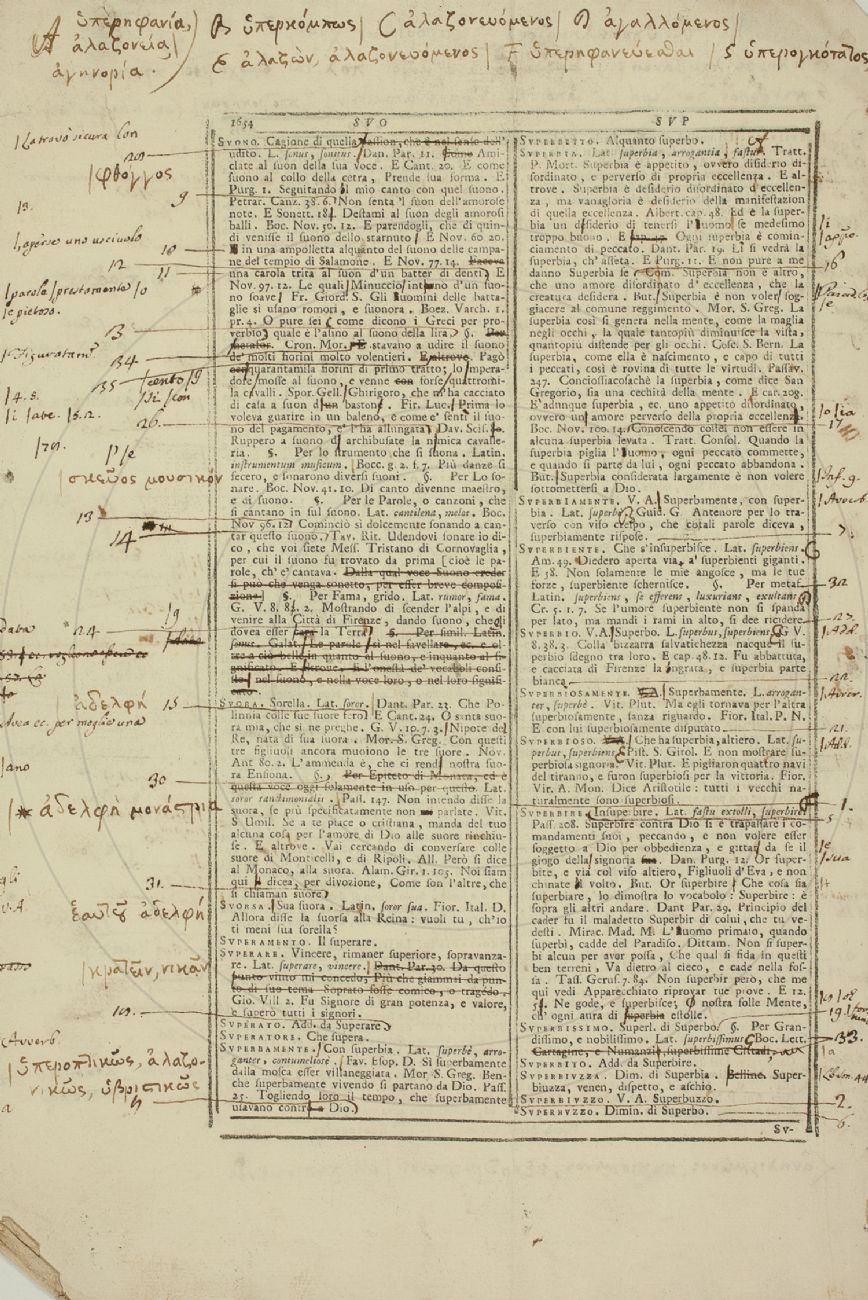 A ὑπερηφανία,) B ὑπερκόμπως | C ἀλαζονευόμενος | D ἀγαλλόμενος |
ἀλαζονεία, | E ἀλαζὼν, ἀλαζονευόμενος | F ὑπερηφανεύεσθαι | G ὑπερογκότατος
ἀγηνορία.
1654 SVO
SVONO. Cagione di quella passion, che è nel senso dell'
udito. L. sonus, sonitus. Dan. Par. 11. Come Ami-
clate al suon della sua voce. E Cant. 20. E come
suono al collo della cetra, Prende sua forma. E
Purg. 1. Seguitando il mio canto con quel suono.
Petrar. Canz. 38. 6. Non senta 'l suon dell'amorose
note. E Sonett. 184. Destami al suon degli amorosi
balli. Boc. Nov. 50. 12. E parendogli, che di quin-
di venisse il suono dello starnuto. E Nov. 60 20.
in una ampolletta alquanto del suono delle campa-
ne del tempio di Salamone. E Nov. 77. 14.
una carola trita al suon d'un batter di denti. E
Nov. 97. 12. Le quali Minuccio d'un suo-
no soave. Fr. Giord. S. Gli uomini delle batta-
glie si usano romori, e suonora. Boez. Varch. 1.
pr. 4. O pure sei come dicono i Greci per pro-
verbio quale è l'asino al suono della lira. §. Per
metafor. Cron. Mor. E stavano a udire il suono
de' molti fiorini molto volentieri. E altrove. Pagò
quarantamila fiorini di primo tratto; lo 'mpera-
dore mosse al suono, e venne con forse quattromi-
la cavalli. Spor. Gell. Ghirigoro, che m'ha cacciato
di casa a suon d'un bastone. Fir. Luc. Prima lo
voleva guattire in un baleno, e come e' sentì il suo-
no del pagamento, e' l'ha allungata. Dav. Scis.
Ruppero a suono di archibusate la nimica cavalle-
ria. §. Per lo strumento che si suona. Latin.
instrumentum musicum. Bocc. g. 2. f. 7. Più danze si
fecero, e sonarono diversi suoni. §. Per Lo so-
nare. Boc. Nov. 41. 10. Di canto divenne maestro,
e di suono. §. Per le Parole, o canzoni, che
si cantano in sul suono. Lat. cantilena, melos. Boc.
Nov 96. 12. Cominciò sì dolcemente sonando a can-
tar questo suono. Tav. Rit. Udendovi sonare io di-
co, che voi siete Mess. Tristano di Cornovaglia,
per cui il suono fu trovato da prima [cioè le pa-
role, ch'e' cantava. Dalla qual voce Suono creder
si può che venga sonetto, per esser breve composi-
zion.] §. Per Fama, grido. Lat. rumor, fama.
G. V. 8. 81. 2. Mostrando di scender l'alpi, e di
venire alla Città di Firenze, dando suono, che gli
dovea esser la Terra. §. Per simil. Latin.
sonus. Galat. Le parole sì nel favellare, ec. e ol-
tre a ciò belle in quanto al suono, e inquanto al si-
gnificato. E altrove. E l'onestà de' vocaboli consi-
ste nel suono, e nella voce loro, o nel loro signifi-
cato.
SVORA. Sorella. Lat. soror. Dant. Par. 23. Che Po-
linnia colle sue suore fero. E Cant. 24. O santa suo-
ra mia, che sì ne preghe. G. V. 10. 7. 3. Nipote del
Re, nata di sua suora. Mor. S. Greg. Con questi
tre figliuoli ancora muoiono le tre suore. Nov.
Ant 80. 2. L'ammenda è, che ci rendi nostra suo-
ra Ensiona. §. Per Epiteto di Monaca, ed è
questa voce oggi solamente in uso per questo. Lat.
soror sanctimonialis. Pass. 147. Non intendo disse la
suora, se più specificatamente non parlate. Vit.
S. Umil. Se a te piace o cristiana, manda del tuo
alcuna cosa per l'amore di Dio alle suore rinchiu-
se. E altrove. Vai cercando di conversare colle
suore di Monticelli, e di Ripoli. All. Però si dice
al Monaco, alla suora. Alam. Gir. 1. 105. Noi siam
qui dicea, per divozione, Come son l'altre, che
si chiaman suore.
SVORSA. Sua suora. Latin. soror sua. Fior. Ital. D.
Allora disse la suorsa alla Reina: vuoli tu, ch'io
ti meni sua sorella?
SVPERAMENTO. Il superare.
SVPERARE. Vincere, rimaner superiore, sopravanza-
re. Lat. superare, vincere. Dant. Par. 30. Da questo
punto vinto mi concedo, Più che giammai da pun-
to di suo tema Soprato fosse comico, o tragedo.
Gio. Vill. 2. Fu Signore di gran potenza, e valore,
e superò tutti i signori.
SVPERATO. Add. da Superare.
SVPERATORE. Che supera.
SVPERBAMENTE. Con superbia. Lat. superbè, arro-
ganter, contumeliosè. Fav. Esop. D. Sì superbamente
dalla mosca esser villaneggiata. Mor. S. Greg. Ben-
chè superbamente vivendo si partano da Dio. Pass.
25. Togliendo loro il tempo, che superbamente
usavano contra Dio.
SVP
SVPERBETTO. Alquanto superbo.
SVPERBIA. Lat. superbia, arrogantia, fastus. Tratt.
P. Mort. Superbia è appetito, ovvero disiderio di-
sordinato, e perverso di propria eccellenza. E al-
trove. Superbia è desiderio disordinato d'eccellen-
za, ma vanagloria è desiderio della manifestazion
di quella eccellenza. Albert. cap. 48. Ed è la super-
bia un disiderio di tenersi l'uomo se medesimo
troppo buono. E Ogni superbia è comin-
ciamento di peccato. Dant. Par. 19. Lì si vedrà la
superbia, ch'asseta. E Purg. 11. E non pure a me
danno Superbia fe' Com. Superbia non è altro,
che uno amore disordinato d'eccellenza, che la
creatura desidera. But. Superbia è non voler sog-
giacere al comune reggimento. Mor. S. Greg. La
superbia così si genera nella mente, come la maglia
negli occhi, la quale tantopiù diminuisce la vista,
quantopiù distende per gli occhi. Cose. S. Bern. La
superbia, come ella è nascimento, e capo di tutti
i peccati, così è rovina di tutte le virtudi. Passav.
247. Conciossiacosachè la superbia, come dice San
Gregorio, sia una cechità della mente. E car. 209.
E' adunque superbia, ec. uno appetito disordinato,
ovvero un amore perverso della propria eccellenza.
Boc. Nov. 100. 14. Conoscendo costei non essere in
alcuna superbia levata. Tratt. Consol. Quando la
superbia piglia l'uomo, ogni peccato commette,
e quando si parte da lui, ogni peccato abbandona.
But. Superbia considerata largamente è non volere
sottomettersi a Dio.
SVPERBIAMENTE. V. A. Superbamente, con super-
bia. Lat. superbè. Guid. G. Antenore per lo tra-
verso con viso crespo, che cotali parole diceva,
superbiamente rispose.
SVPERBIENTE. Che s'insuperbisce. Lat. superbiens.
Am. 49. Diedero aperta via a' superbienti giganti.
E 58. Non solamente le mie angosce, ma le tue
forze, superbiente schernisce. §. Per metaf.
Latin. superbiens, se efferens, luxurians, exultans.
Cr. 5. 1. 7. Se l'umore superbiente non si spanda
per lato, ma mandi i rami in alto, si dee ricidere.
SVPERBIO. V. A. Superbo. L. superbus, superbiens. G V.
8. 38. 3. Colla bizzarra salvatichezza nacque il su-
perbio sdegno tra loro. E cap. 48. 12. Fu abbattuta,
e cacciata di Firenze la ingrata, e superbia parte
bianca.
SVPERBIOSAMENTE. V. A. Superbamente. L. arrogan-
ter, superbè. Vit. Plut. Ma egli tornava per l'altra
superbiosamente, sanza riguardo. Fior. Ital. P. N.
E con lui superbiosamente disputato.
SVPERBIOSO. V. A. Che ha superbia, altiero. Lat. su-
perbus, superbiens. Pist. S. Girol. E non mostrare su-
perbiosa signoria. Vit. Plut. E pigliaron quattro navi
del tiranno, e furon superbiosi per la vittoria. Fior.
Vir. A. Mon. Dice Aristotile: tutti i vecchi na-
turalmente sono superbiosi.
SVPERBIRE. Insuperbire. Lat. fastu extolli, superbire.
Pass. 208. Superbire contra Dio si è trapassare i co-
mandamenti suoi, peccando, e non volere esser
soggetto a Dio per obbedienza, e gittar da se il
giogo della signoria sua. Dan. Purg. 12. Or super-
bite, e via col viso altiero, Figliuoli d'Eva, e non
chinate il volto. But. Or superbire. Che cosa sia
superbiare, lo dimostra lo vocabolo: Superbire: è
sopra gli altri andare. Dant Par. 29. Principio del
cader fu il maladetto Superbir di colui, che tu ve-
desti. Mirac. Mad. M. L'uomo primaio, quando
superbì, cadde del Paradiso. Dittam. Non si super-
bì alcun per aver possa, Che qual si fida in questi
ben terreni, Va dietro al cieco, e cade nella fos-
sa. Tass. Gerus. 7. 84. Non superbir però, che me
qui vedi Apparecchiato riprovar tue prove. E 12.
Ne gode, e superbisce; O nostra folle Mente,
ch' ogni aura di superbia estolle.
SVPERBISSIMO. Superl. di Superbo. §. Per Gran-
dissimo, e nobilissimo. Lat. superbissimus. Boc. Lett.
Cartagine, e Numanzia, superbissime Cittadi,
SVPERBITO. Add. da Superbire.
SVPERBIVZZA. Dim. di Superbia. Bellinc. Super-
biuzza, venen, dispetto, e aschio.
SVPERBIVZZO. V. A. Superbuzzo.
SVPERBVZZO. Dimin. di Superbo.
SV-
| La trovò sicura con
φθόγγος
9
13.
10
12
11
| parole | prestamente
13
| Figuratam.te
34
35
26
σκεῦος μουσικόν
13
14
19
24
ἀδελφὴ 15
30
ἀδελφὴ μονάστρια
31.
ἑαυτοῦ ἀδελφή
κρατεῖν, νικᾶν
Avverb
ὑπεροπτικῶς, ἀλαζο-
νικῶς, ὑβριστικῶς
16
17
| Inf. 9.
| Avverb
7.
32
23.
| Add.
22.
| Avver.
21.
| Add.
1.
5
| sua
33.
2.
6.